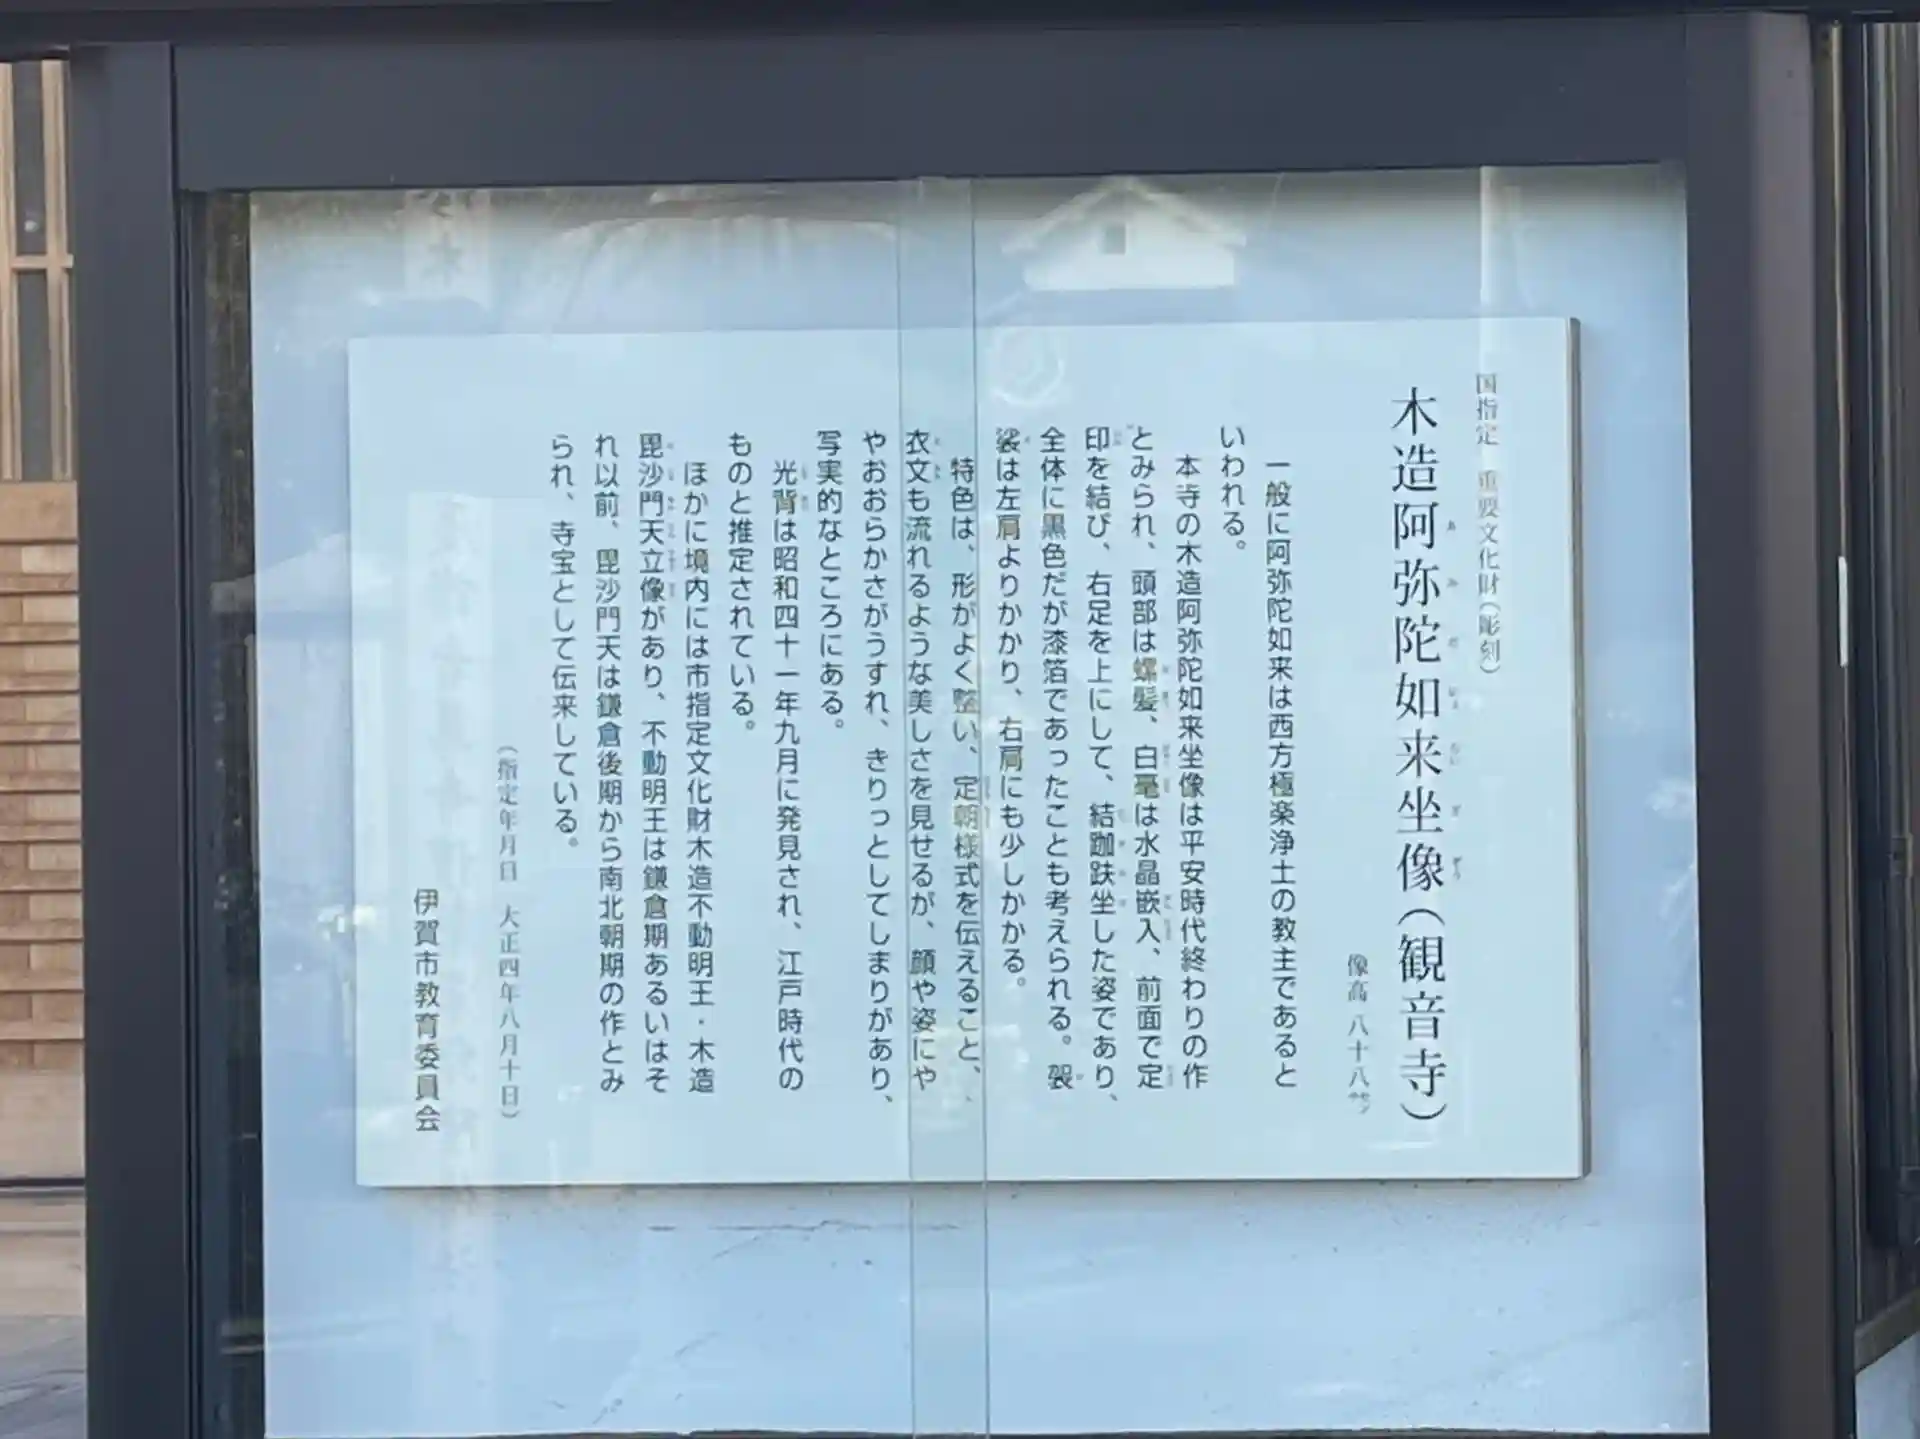 国指定 重要文化財（彫刻）
木造阿弥陀如来坐像（観音寺）
像高 八十八㌢
一般に阿弥陀如来は西方極楽浄土の教主であると
いわれる。
本寺の木造阿弥陀如来坐像は平安時代終わりの作
とみられ、頭部は螺髪、白毫は水晶嵌入、前面で定
印を結び、右足を上にして、結跏趺坐した姿であり、
全体に黒色だが漆箔であったことも考えられる。袈
裟は左肩よりかかり、右肩にも少しかかる。
特色は、形がよく整い、定朝様式を伝えること、
衣文も流れるような美しさを見せるが、顔や姿にや
やおおらかさがうすれ、きりっとしてしまりがあり、
写実的なところにある。
光背は昭和四十一年九月に発見され、江戸時代の
ものと推定されている。
ほかに境内には市指定文化財木造不動明王・木造
毘沙門天立像があり、不動明王は鎌倉期あるいはそ
れ以前、毘沙門天は鎌倉後期から南北朝期の作とみ
られ、寺宝として伝来している。
（指定年月日 大正四年八月十日）
伊賀市教育委員会